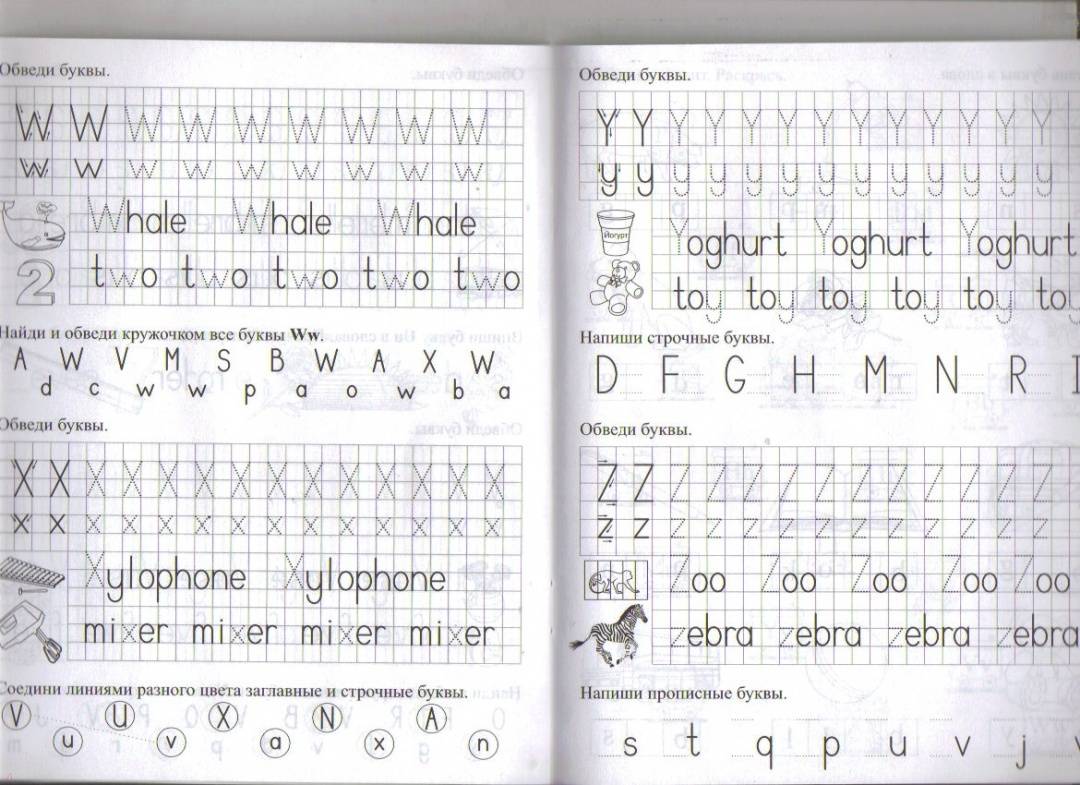 Обведи буквы.
W W W W W W W W W
w w w w w w w w w
Whale Whale Whale
2 two two two two two
Найди и обведи кружочком все буквы Ww.
A W V M S B W A X W
d c w w p a o w b a
Обведи буквы.
X X X X X X X X X X X X X
x x x x x x x x x x x x x
Xylophone Xylophone
mixer mixer mixer mixer
Соедини линиями разного цвета заглавные и строчные буквы.
V U X N A
u v a x n
Обведи буквы.
Y Y Y Y Y Y Y Y Y Y Y Y Y
y y y y y y y y y y y y y
Йогурт Yoghurt Yoghurt Yoghurt
toy toy toy toy toy
Напиши строчные буквы.
D F G H M N R
Обведи буквы.
Z Z Z Z Z Z Z Z Z Z Z Z Z
z z z z z z z z z z z z z
Zoo Zoo Zoo Zoo Zoo
zebra zebra zebra zebra
Напиши прописные буквы.
s t q p u v j